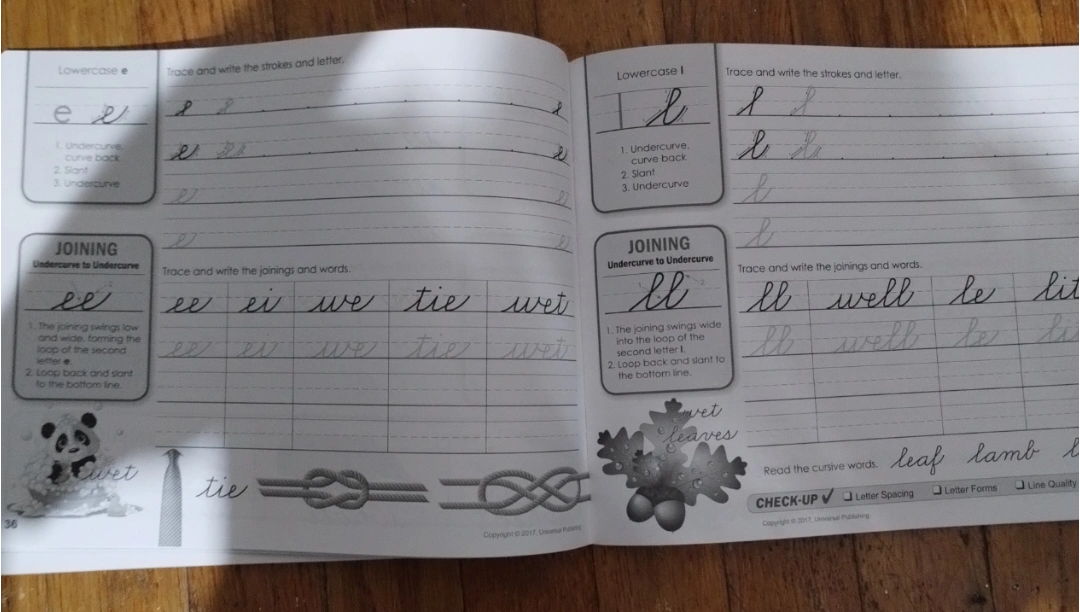 Lowercase e
e e
1. Undercurve,
curve back
2. Slant
3. Undercurve
Trace and write the strokes and letter.
e
e
e
e
e
JOINING
Undercurve to Undercurve
ee
1. The joining swings low
and wide, forming the
loop of the second
letter e.
2. Loop back and slant
to the bottom line.
Trace and write the joinings and words.
ee ei we tie wet
ee ei we tie wet
wet
tie
36
Copyright © 2017, Universal Publishing
Lowercase l
l l
1. Undercurve,
curve back
2. Slant
3. Undercurve
Trace and write the strokes and letter.
l
l
l
JOINING
Undercurve to Undercurve
ll
1. The joining swings wide
into the loop of the
second letter l.
2. Loop back and slant to
the bottom line.
Trace and write the joinings and words.
ll well le
ll well le
wet
leaves
Read the cursive words. leaf lamb
CHECK-UP ✓ ❑ Letter Spacing ❑ Letter Forms ❑ Line Quality
Copyright © 2017, Universal Publishing